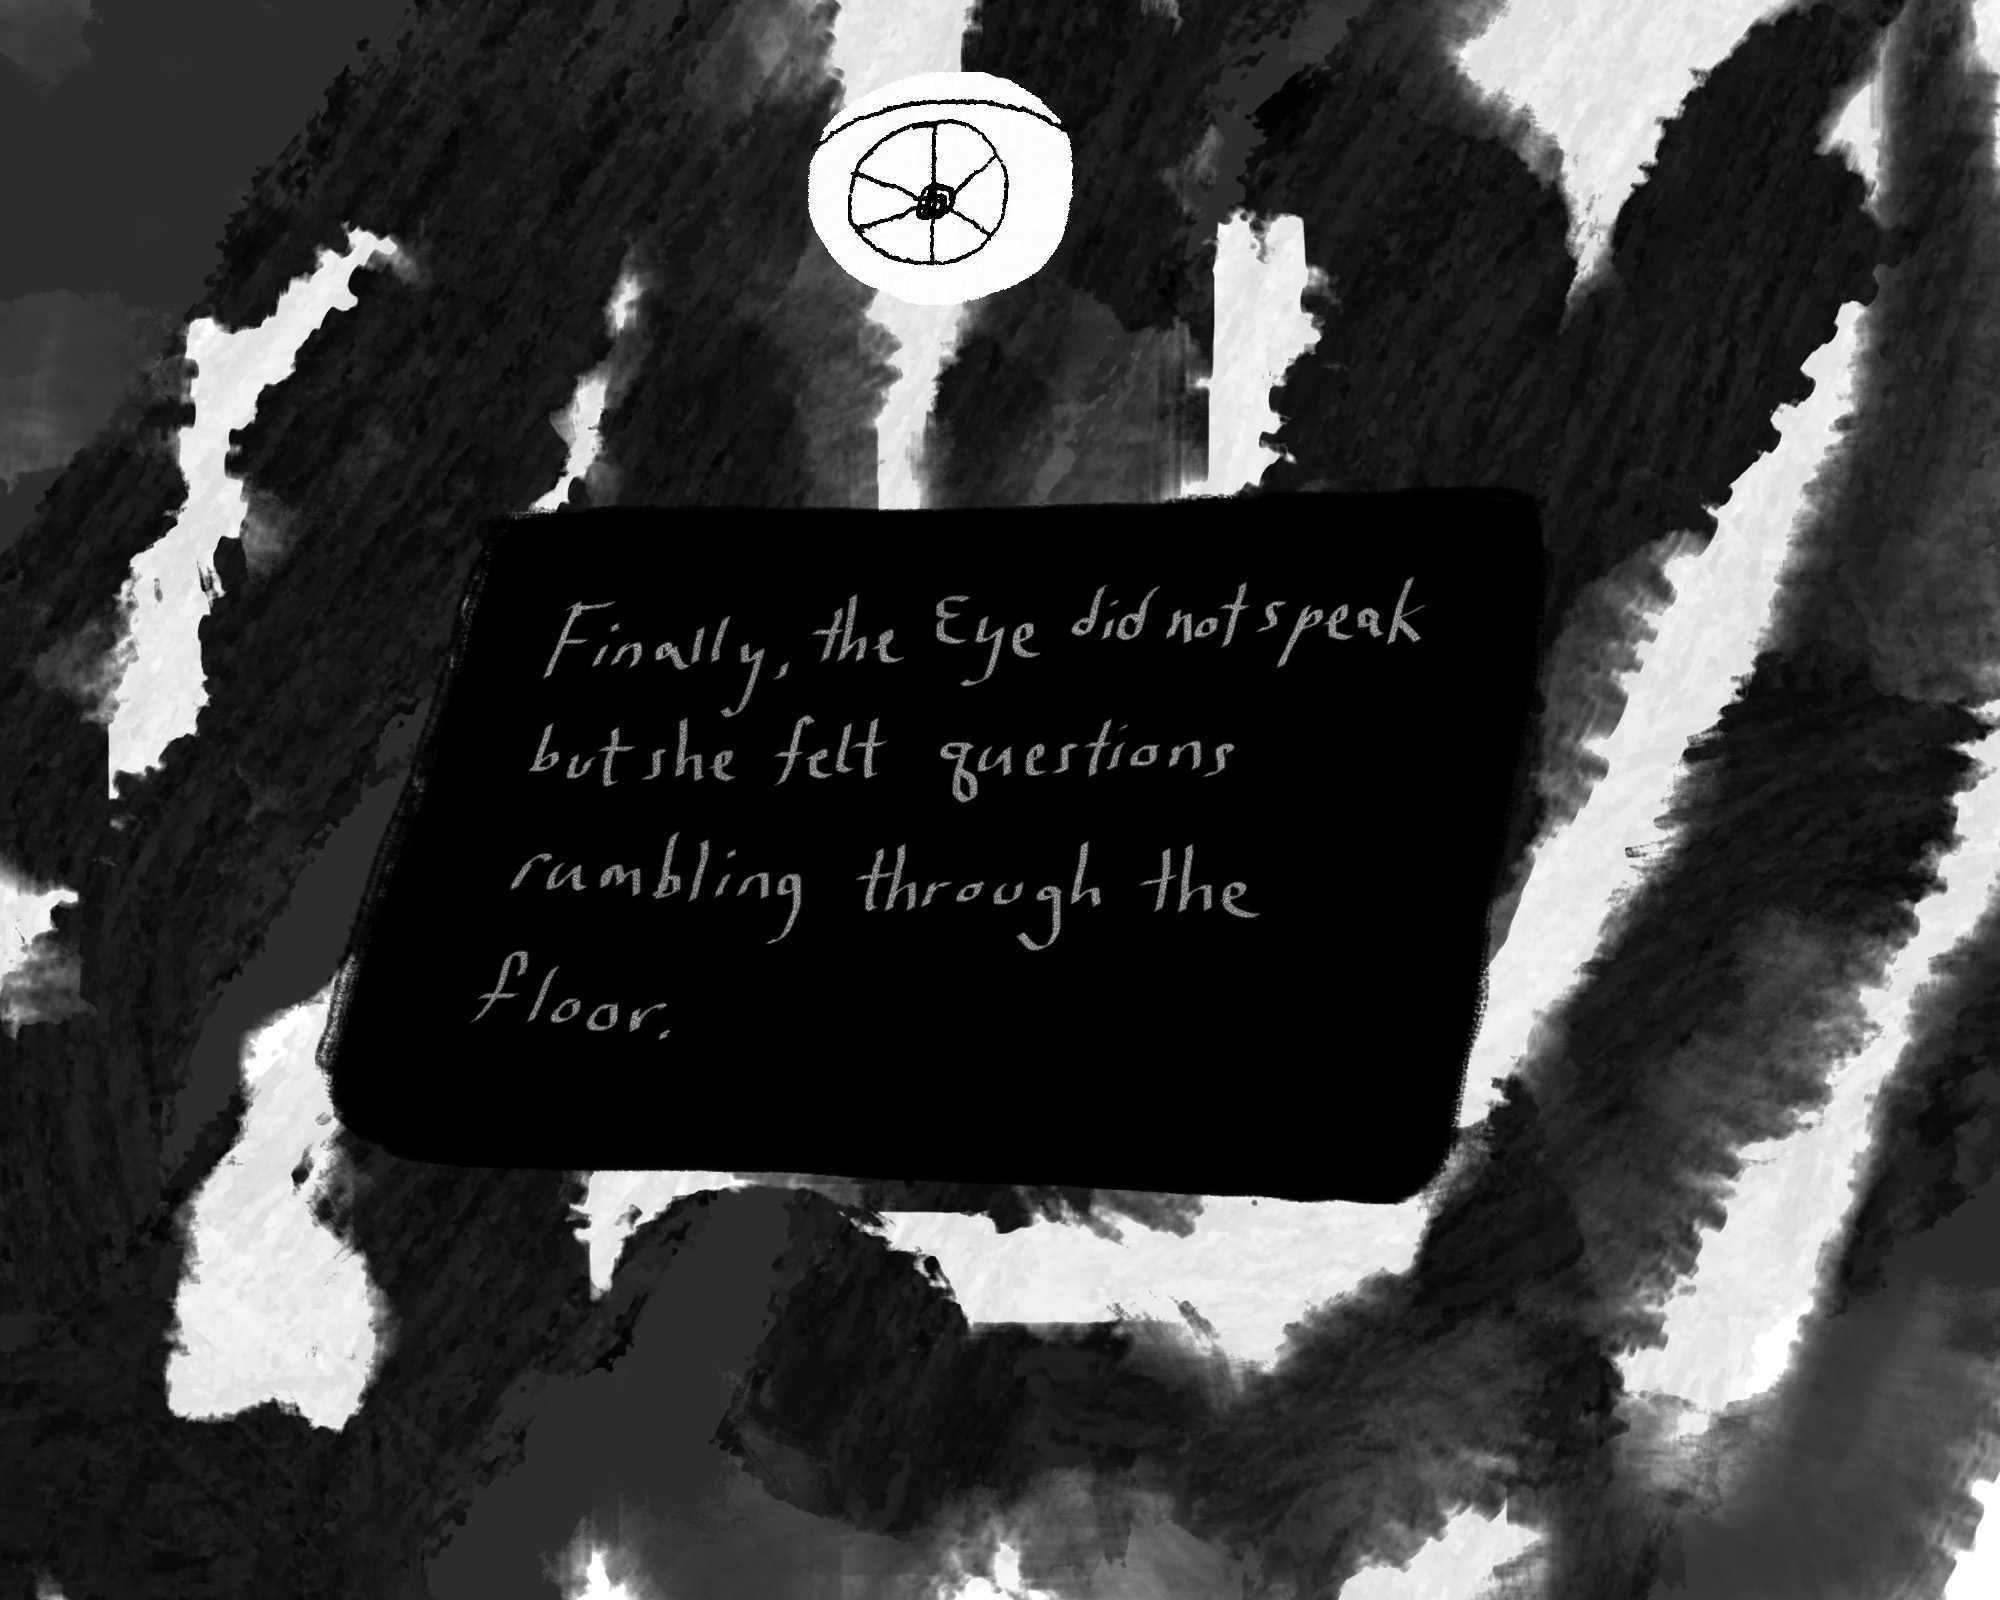 Finally, the Eye did not speak
but she felt questions
rumbling through the
floor.